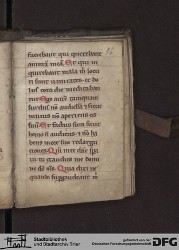 faciebant qui querebant
animā meā. Et qui in
quirebant mala m̄ locu
ti sunt uanitates. et do
los tota die meditaban
tur. Ego autē tamquam
surdus nō audiebā et sicut
mutus nō aperiens os
suū. Et factus sum sicut
homo n̄ audiens. et nō ha
bens in ore suo redargu
tiones. Qm̄ in te dn̄e spa
ui tu exaudies me domi
ne ds̄ ms̄. Quia dixi ne
quando supergaudeant m̄
Stadtbibliothek
und Stadtarchiv Trier
gefördert von der
Deutschen Forschungsgemeinschaft
DFG